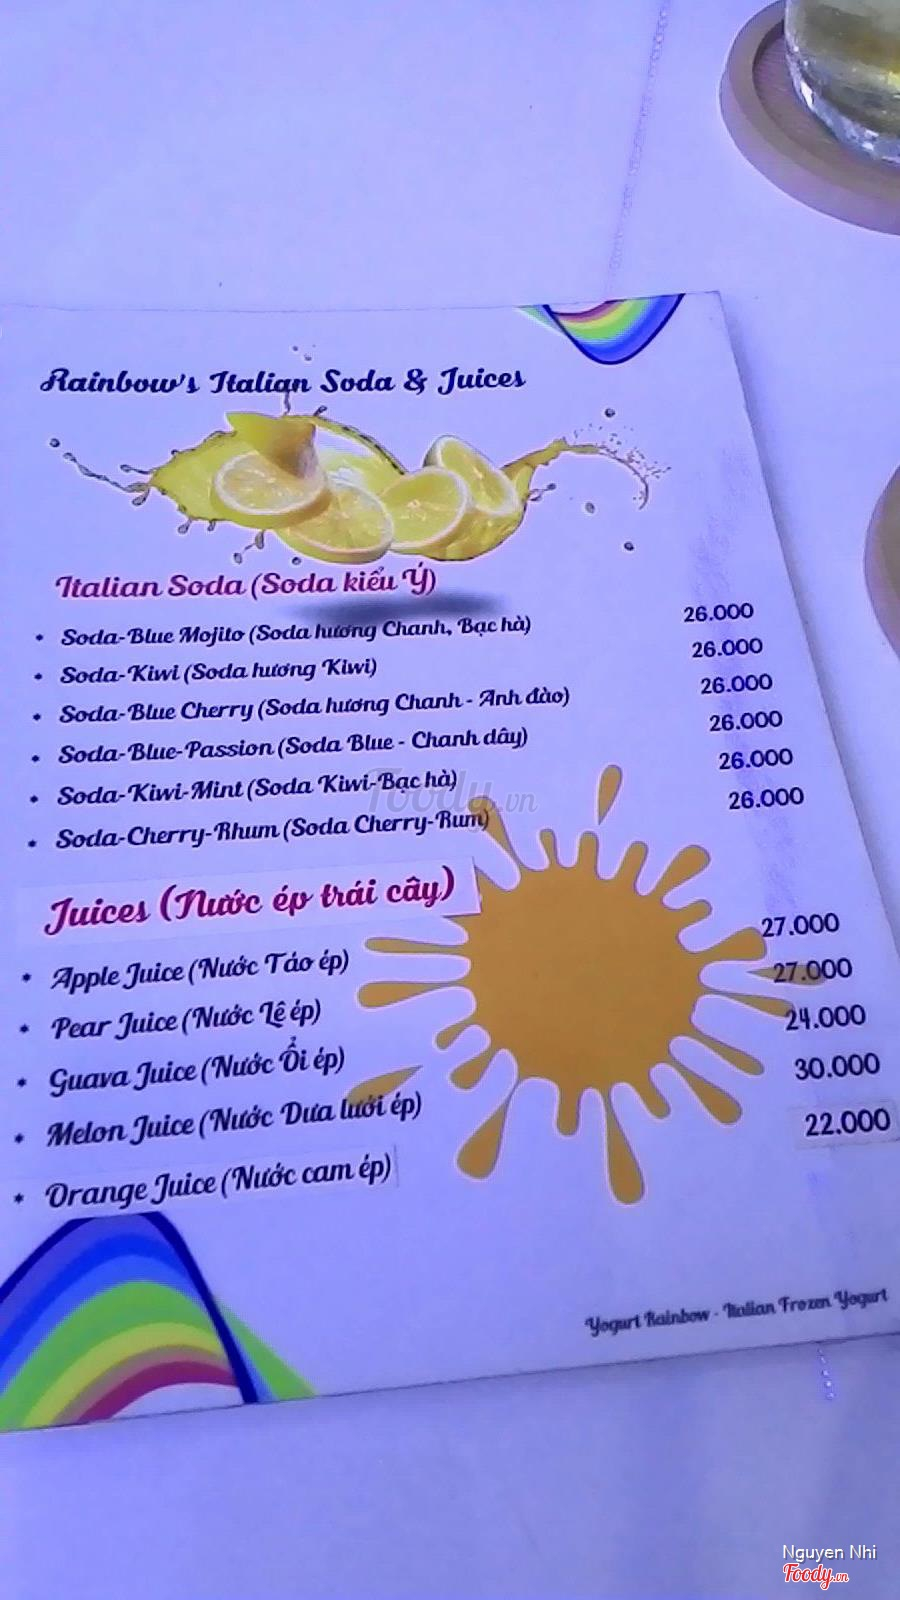 Rainbow's Italian Soda & Juices
Italian Soda (Soda kiểu Ý)
* Soda-Blue Mojito (Soda hương Chanh, Bạc hà) 26.000
* Soda-Kiwi (Soda hương Kiwi) 26.000
* Soda-Blue Cherry (Soda hương Chanh - Anh đào) 26.000
* Soda-Blue-Passion (Soda Blue - Chanh dây) 26.000
* Soda-Kiwi-Mint (Soda Kiwi-Bạc hà) 26.000
* Soda-Cherry-Rhum (Soda Cherry-Rum) 26.000
Foody.vn
Juices (Nước ép trái cây)
* Apple Juice (Nước Táo ép) 27.000
* Pear Juice (Nước Lê ép) 27.000
* Guava Juice (Nước Ổi ép) 24.000
* Melon Juice (Nước Dưa lưới ép) 30.000
* Orange Juice (Nước cam ép) 22.000
Yogurt Rainbow - Italian Frozen Yogurt
Nguyen Nhi
Foody.vn